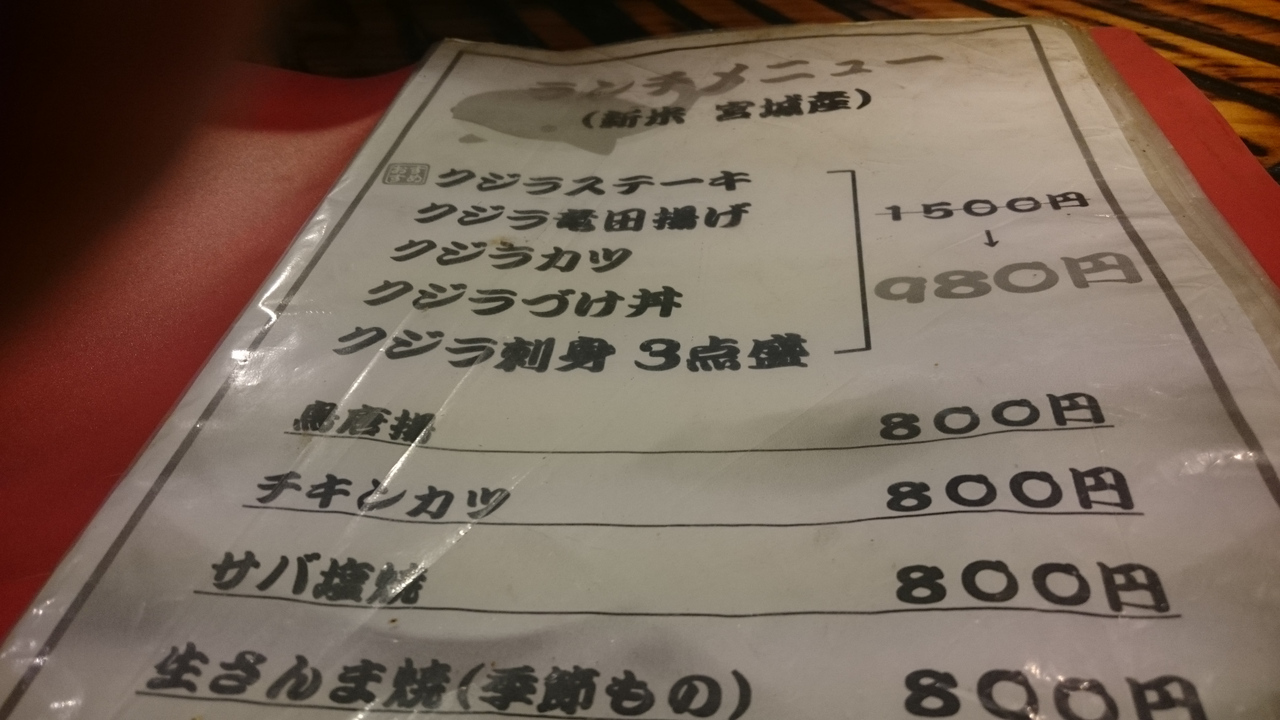 ランチメニュー
(新米 宮城産)
おすすめ クジラステーキ
クジラ竜田揚げ
クジラカツ
クジラづけ丼
クジラ刺身 3点盛
1500円
↓
980円
鳥唐揚 800円
チキンカツ 800円
サバ塩焼 800円
生さんま焼(季節もの) 800円